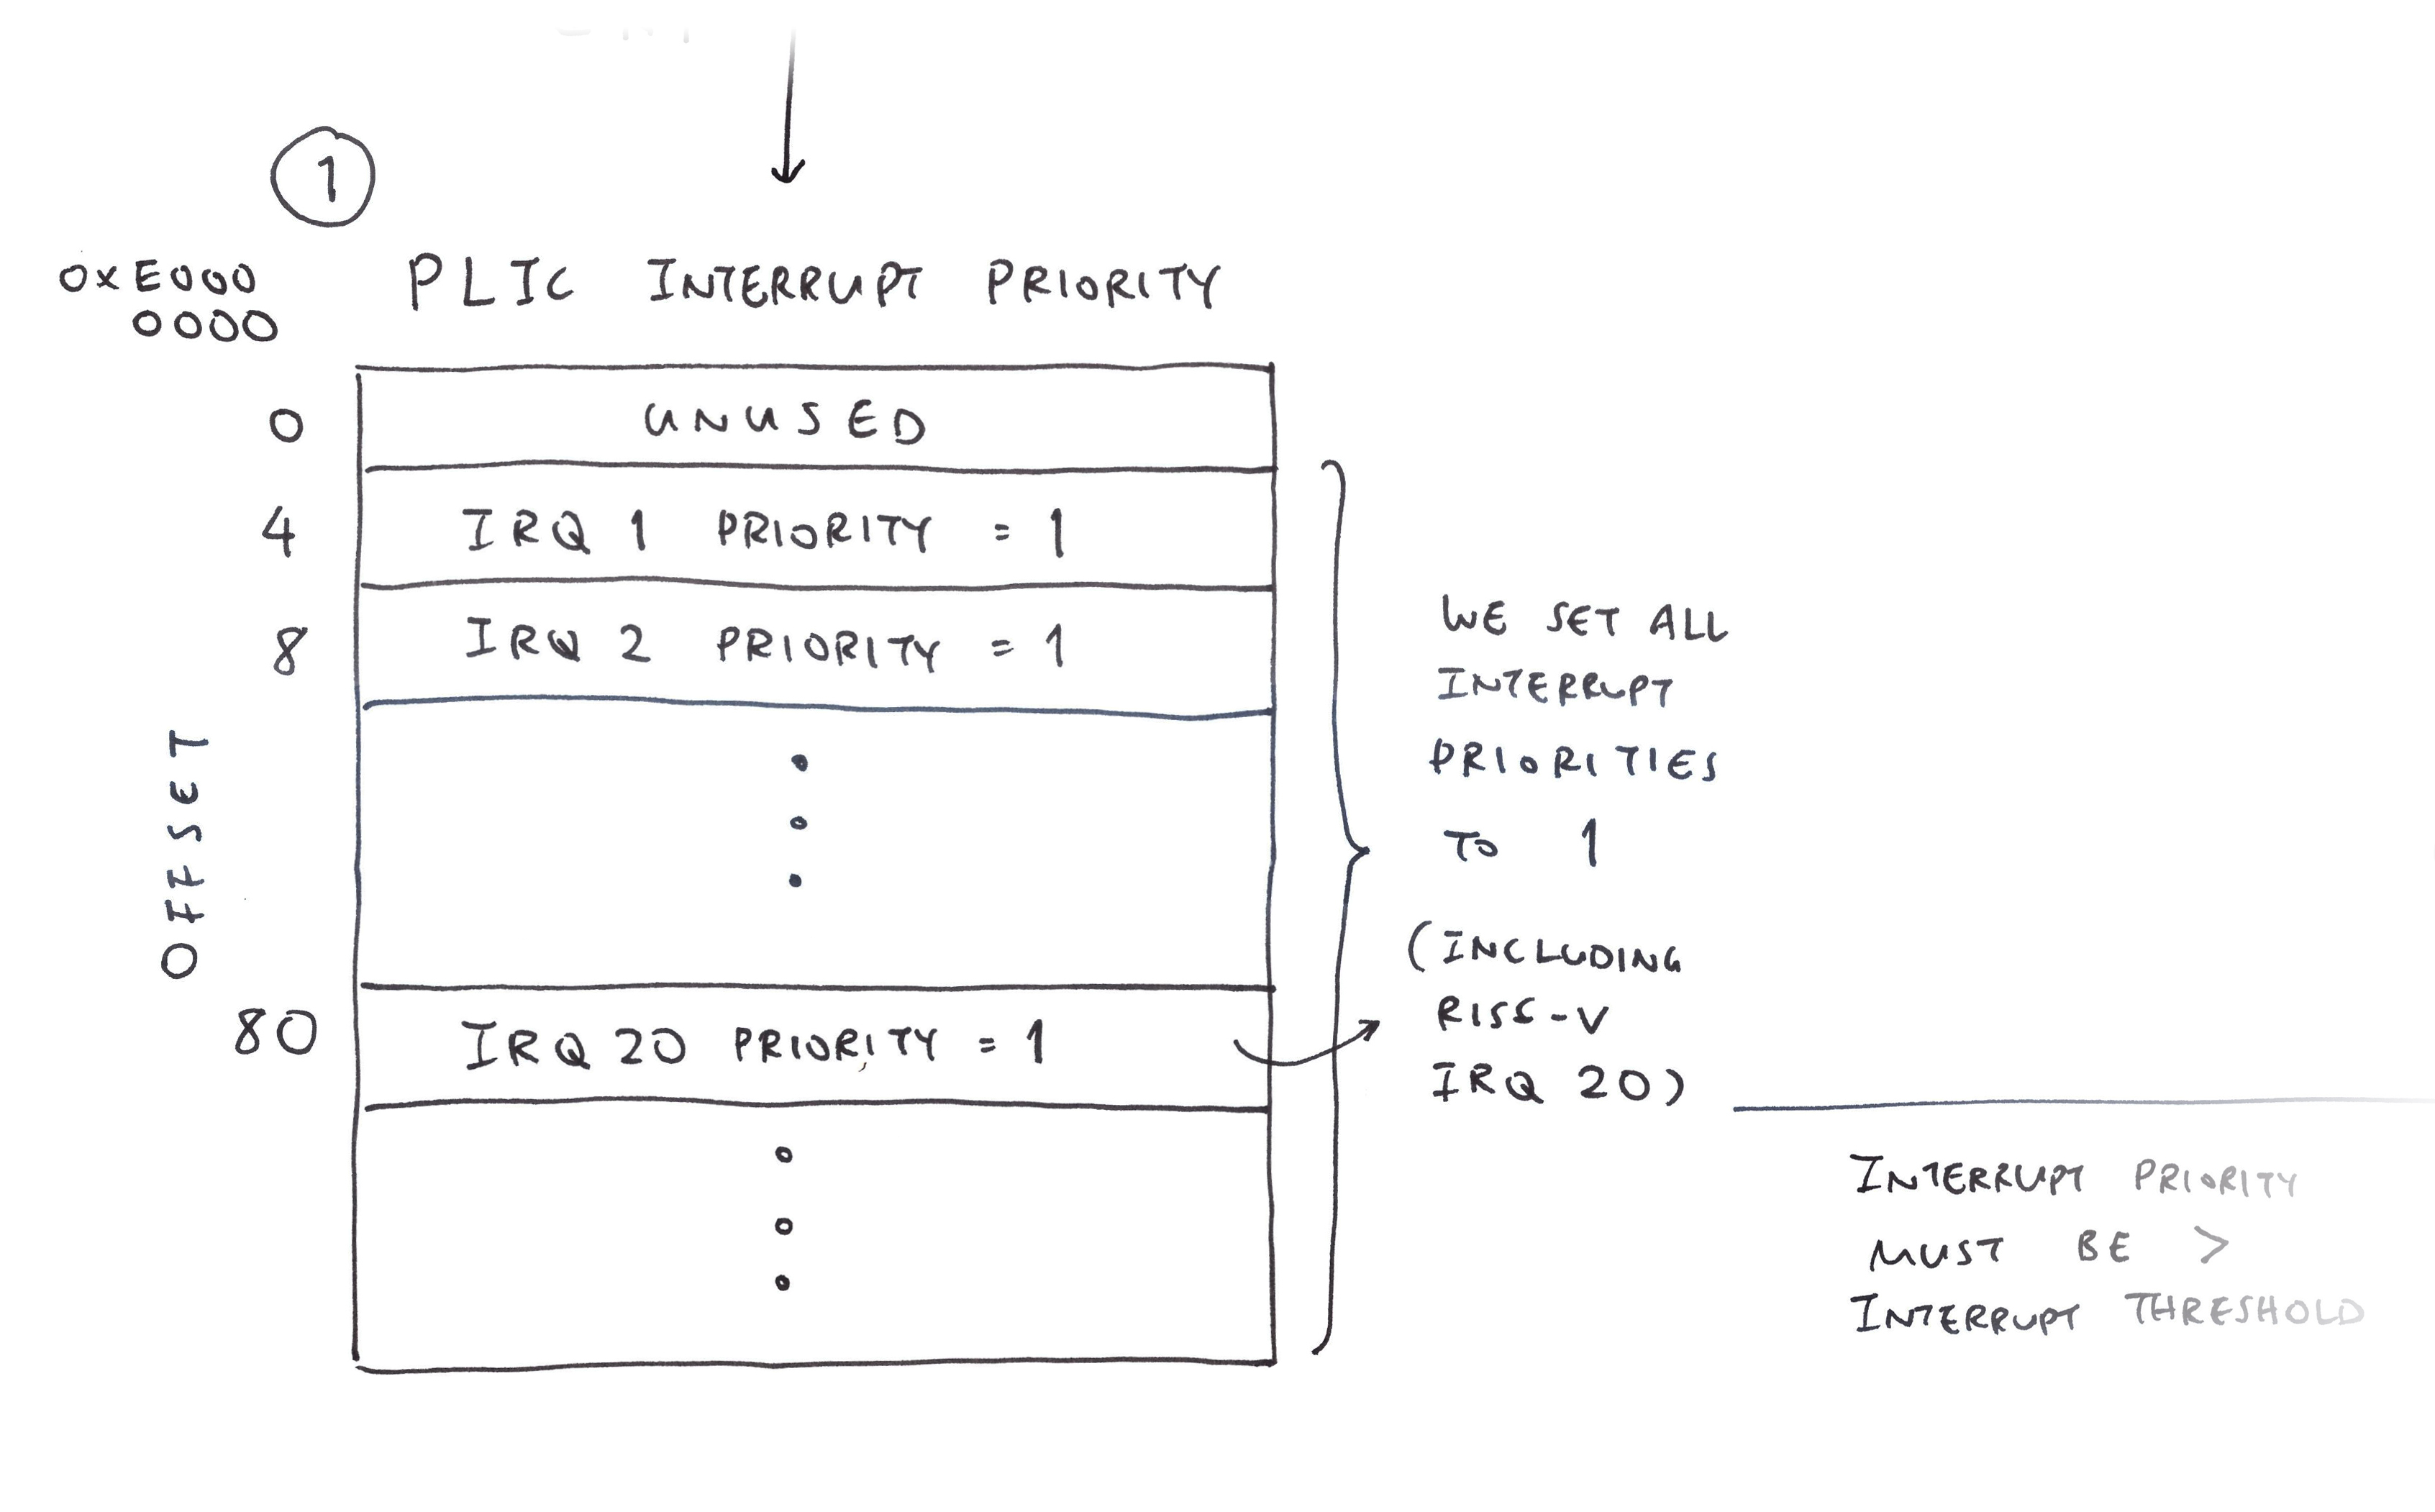 1
0xE000
0000
PLIC INTERRUPT PRIORITY
0
UNUSED
4
IRQ 1 PRIORITY = 1
8
IRQ 2 PRIORITY = 1
OFFSET
80
IRQ 20 PRIORITY = 1
WE SET ALL
INTERRUPT
PRIORITIES
TO 1
(INCLUDING
RISC-V
IRQ 20)
INTERRUPT PRIORITY
MUST BE >
INTERRUPT THRESHOLD